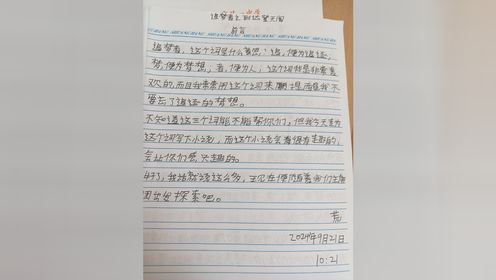 追梦者之到达星天围
前言
追梦者,这个词是什么意思?追,便为追逐,
梦,便为梦想;者,便为人;这个词我是非常喜
欢的,而且我常常用这个词来潮提醒我不
要忘了追逐的梦想。
不知道这三个词能不能帮你们,但我今天走为
这个词写大小说,而这个小说会看很有走趣的,
会让你们感兴趣的。
好了,我话就说这么多,
探索吧。
2024年9月21日
10:21